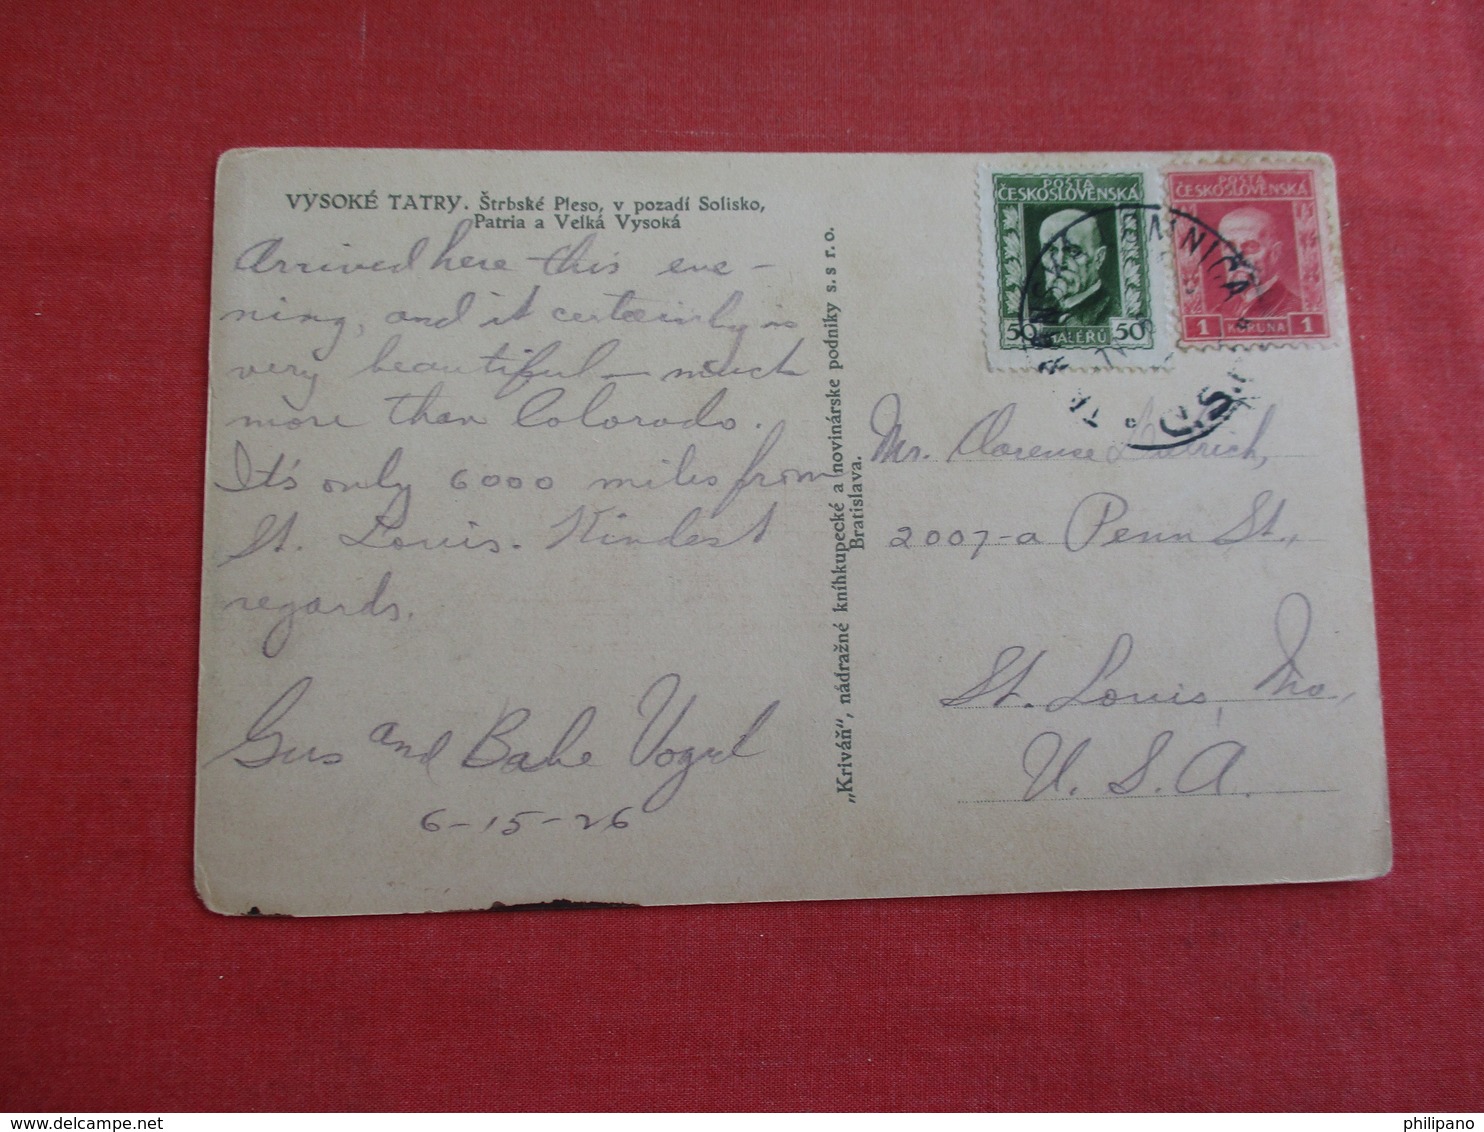 VYSOKÉ TATRY. Štrbské Pleso, v pozadí Solisko,
Patria a Velká Vysoká
Arrived here this eve-
ning, and it certainly is
very beautiful - much
more than Colorado.
It's only 6000 miles from
St. Louis. Kindest
regards.
Gus and Babe Vogel
6-15-26
„Kriváň", nádražné kníhkupecké a novinárske podniky s. s r. o.
Bratislava.
POŠTA
ČESKOSLOVENSKÁ
50 HALÉŘŮ 50
POŠTA
ČESKOSLOVENSKÁ
1 KORUNA 1
LOMNICA
Č.S.
Mr. Clarence
2007-a Penn St.,
St. Louis, Mo.,
U. S. A.
www.delcampe.net
philipano